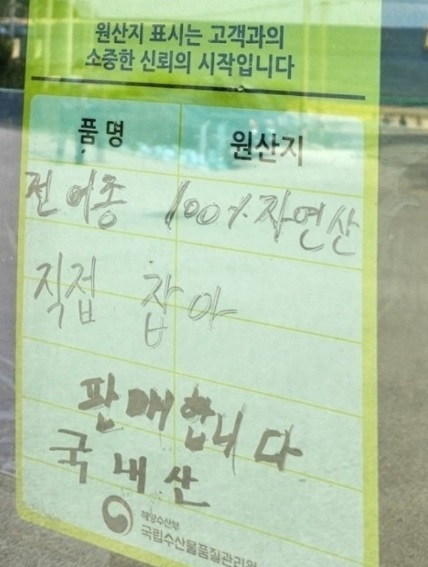 원산지 표시는 고객과의
소중한 신뢰의 시작입니다
품명 원산지
전어종 100% 자연산
직접 잡아
판매합니다
국내산
해양수산부
국립수산물품질관리원